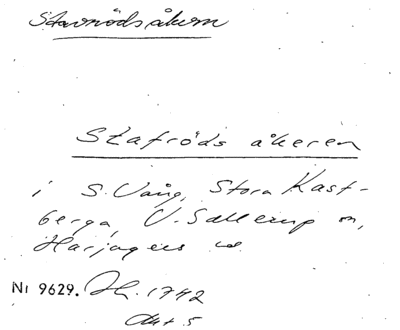 Stavrödsåkern
Stafröds åkeren
i S. Vång, Stora Kast-
berga, V. Sallerup sn,
Harjagers hd
NI 9629. Jh. 1742
Akt 5